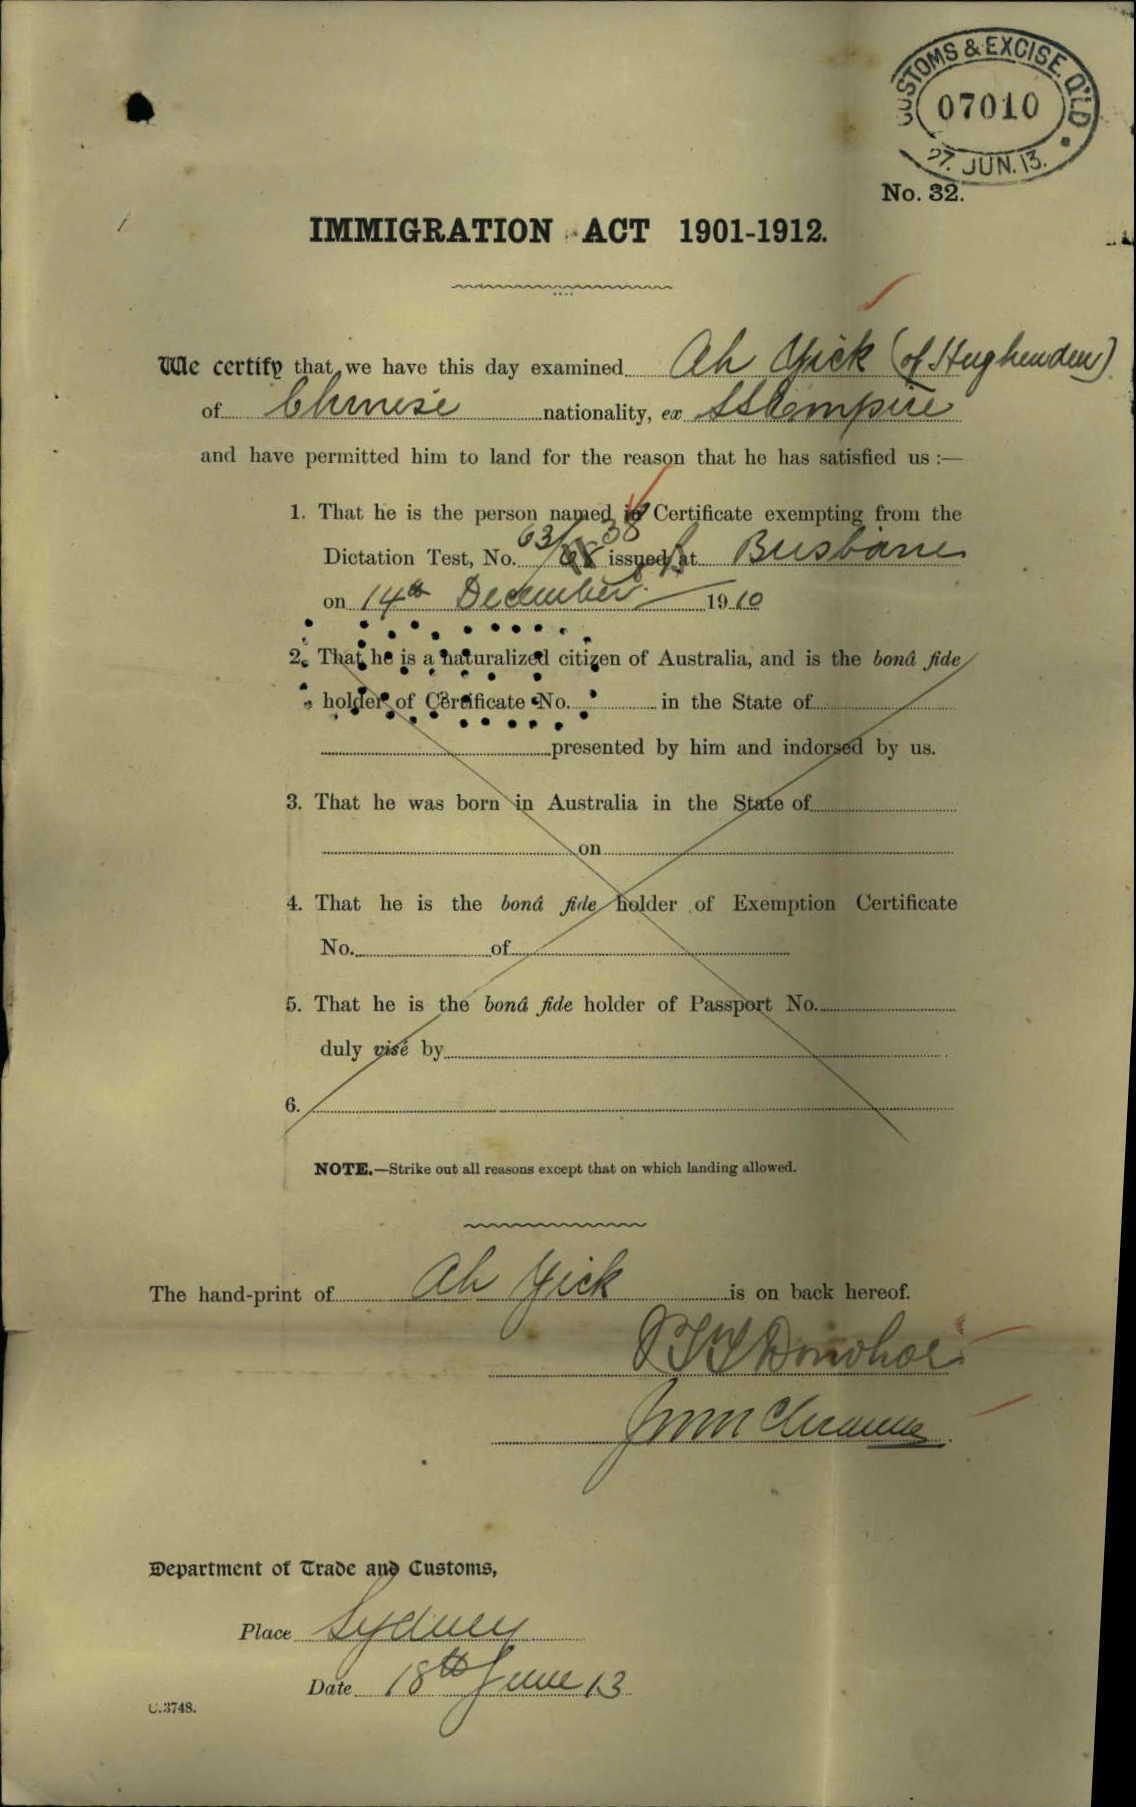 CUSTOMS & EXCISE. Q'LD
07010
27. JUN. 13.
No. 32.
IMMIGRATION ACT 1901-1912.
We certify that we have this day examined Ah Yick (of Hughenden)
of Chinese nationality, ex SS Empire
and have permitted him to land for the reason that he has satisfied us :—
1. That he is the person named in Certificate exempting from the
38
Dictation Test, No. 63/ issued at Brisbane
on 14th December 1910
2. That he is a naturalized citizen of Australia, and is the bonâ fide
holder of Certificate No. in the State of
presented by him and indorsed by us.
3. That he was born in Australia in the State of
on
4. That he is the bonâ fide holder of Exemption Certificate
No. of
5. That he is the bonâ fide holder of Passport No.
duly visé by
6.
NOTE.—Strike out all reasons except that on which landing allowed.
The hand-print of Ah Yick is on back hereof.
Donohoe
Department of Trade and Customs,
Place Sydney
Date 18th June 13
C.3748.